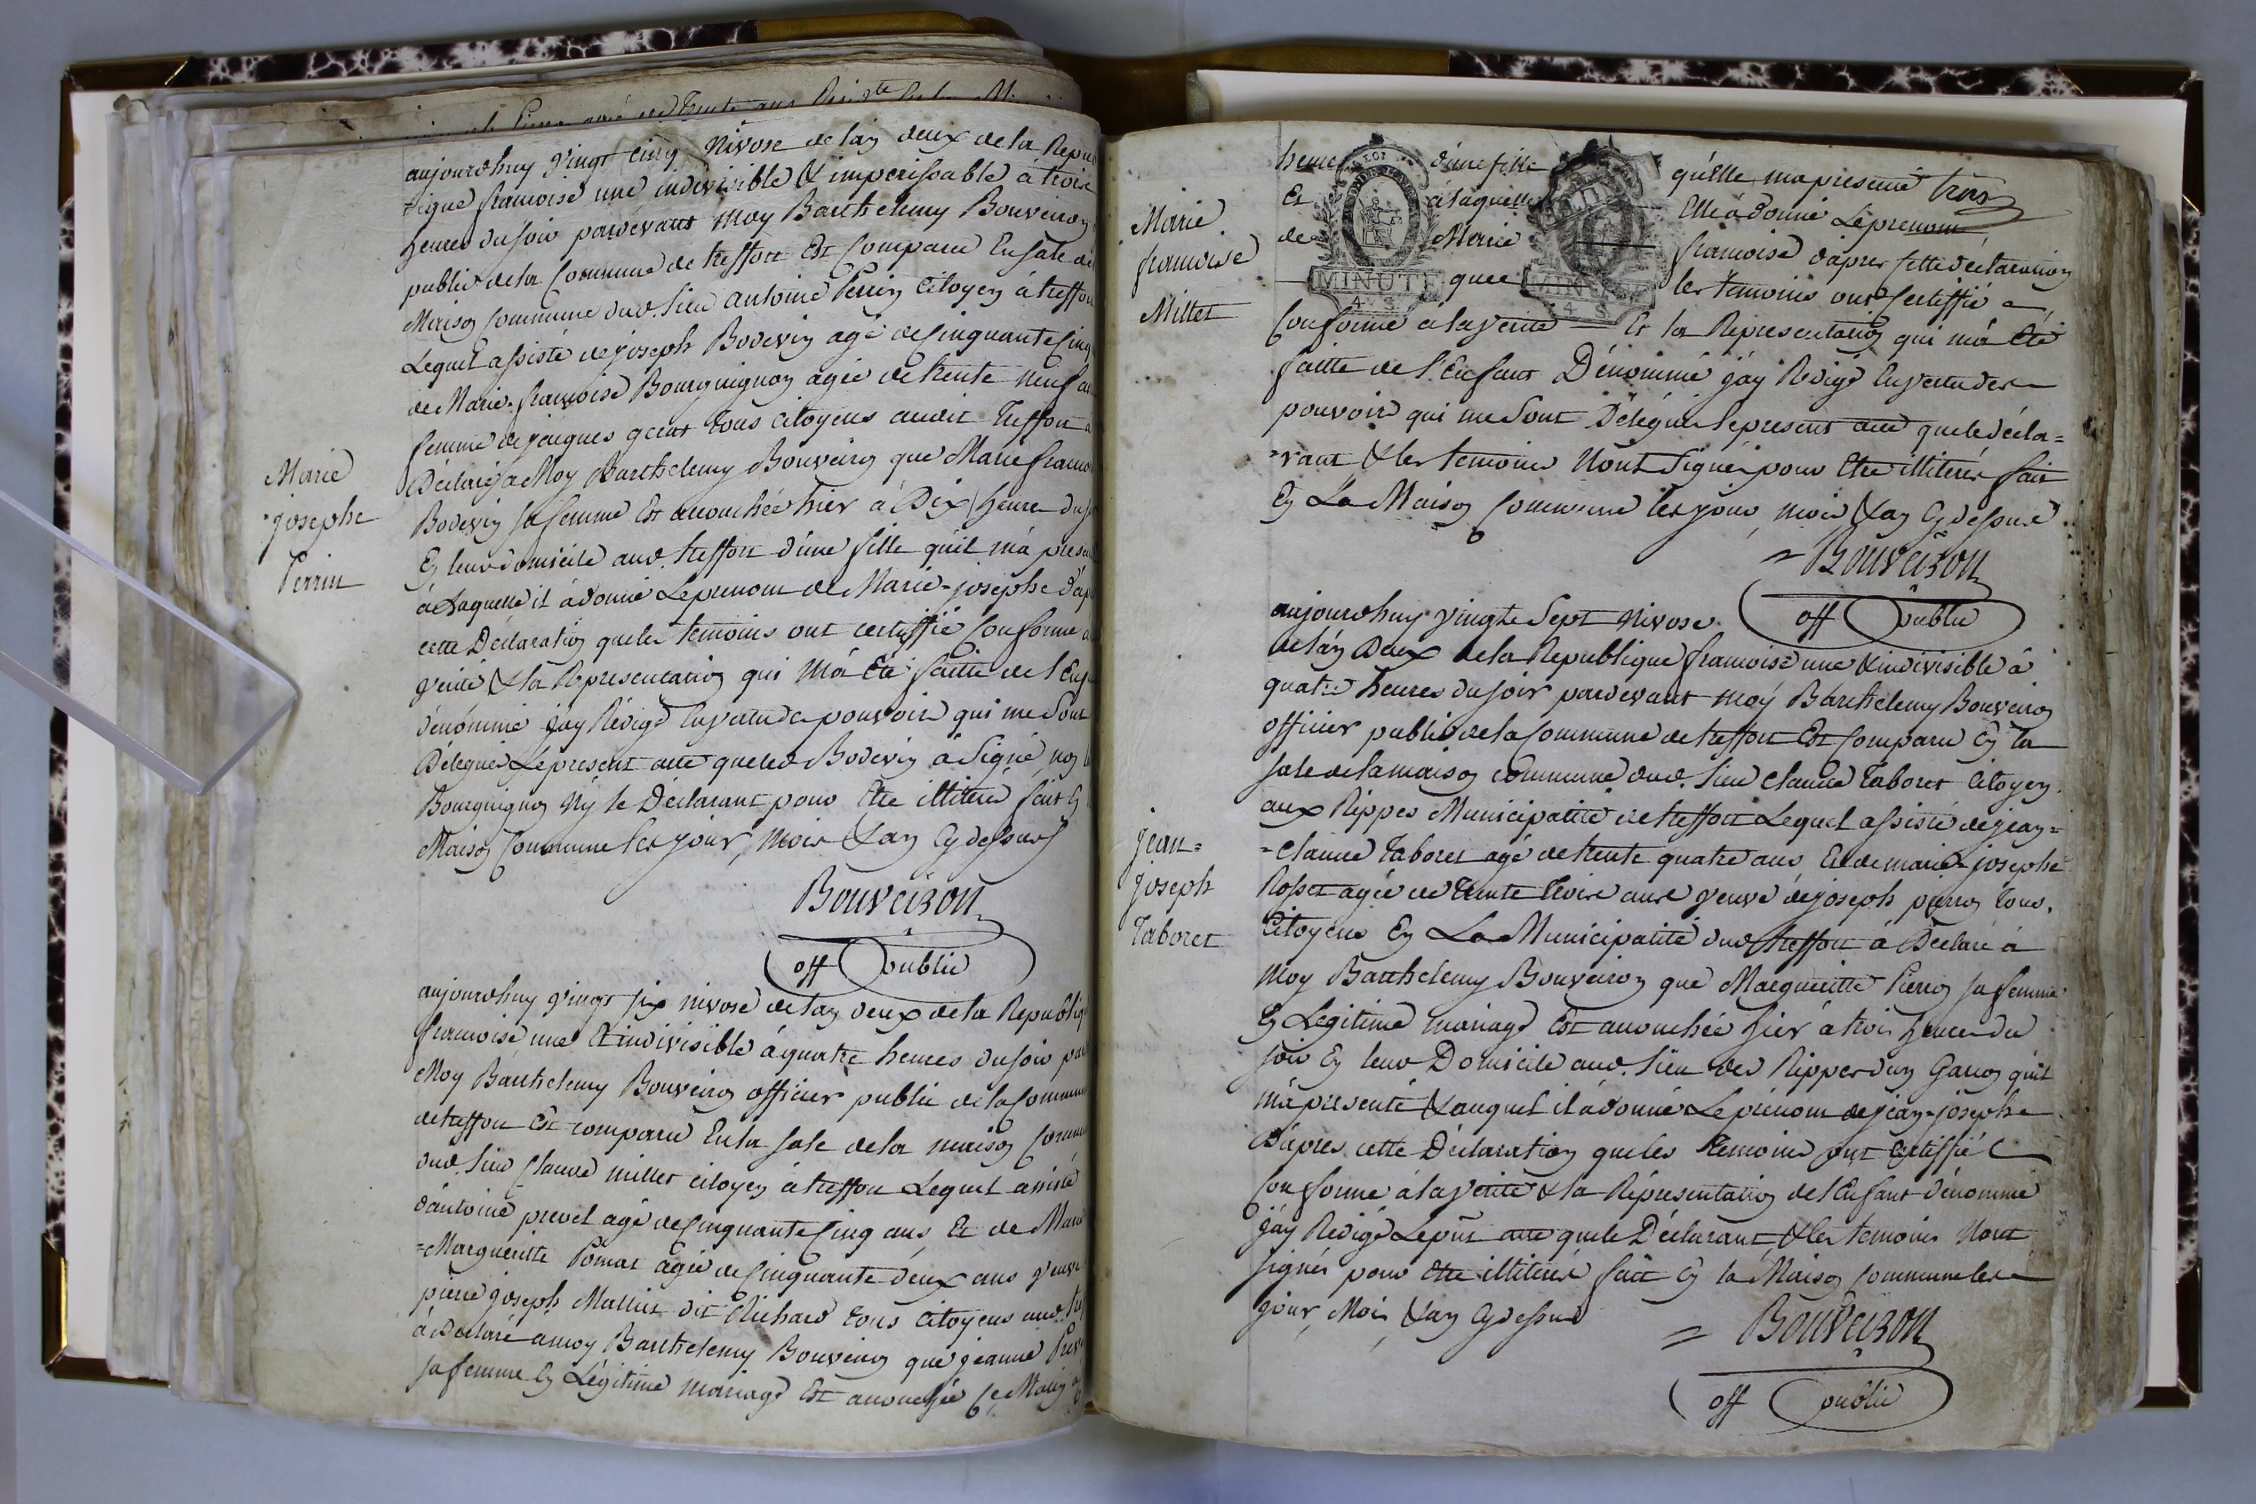 aujourdhuy vingt cinq Nivose de lan deux de la Repu
=ique francoise une indivisible & imperissable à trois
heures du soir pardevant moy Barthelemy Bouveiron
public de la Commune de treffort Est Comparu En sale de
Maison Commune dud. lieu antoine Perrin Citoyen à treffort
Lequel assisté de joseph Bodevin agé de Cinquante Cinq
de Marie francoise Bourguignon agée de trente neuf an
femme de jacques tous Citoyens audit Treffort a
Déclaré a Moy Barthelemy Bouveiron que Marie franco
Bodevin sa femme Est accouchée hier à Dix heures du s
En leur domicile aud. treffort d'une fille quil m'a presen
à Laquelle il à donné Leprenom de Marie-josephe d'ap
cette Déclaration queles temoins ont certiffié Conforme a
verité & la Representation qui m'a Eté faitte de l'Enfa
dénommé jay Rédigé En vertu de pouvoirs qui me Sont
Délegués Lepresent acte queled Bodevin à Signé non
Bourguignon Ny le Déclarant pour Etre illiteré fait En
Maison Commune les jour, mois & an Cy dessus
Bouveiron
off public
Marie
josephe
Perrin
aujourdhuy vingt six nivose de lan deux de la Republiq
francoise une Et indivisible à quatre heures du soir par
Moy Barthelemy Bouveiron officier public de la Commun
de treffort Est comparu En la sale de la maison Commu
dud. lieu Claude millet citoyen à treffort Lequel assisté
d'antoine prevel agé de Cinquante Cinq ans Et de Marie
=Margueritte Pomat agée de Cinquante deux ans veuve
pierre joseph Mallin dit Richard tous Citoyens aud. tref
à Déclaré amoy Barthelemy Bouveiron que jeanne Prev
sa femme En Légitime mariage Est accouchée Ce Matin à
heure d'une fille qu'elle ma presenté trois
Et à laquelle Elle à donné Leprenom
de Marie francoise d'apres cette declaration
que les temoins ont Certiffié
Conforme à la verité Et la Representation qui m'à Eté
faitte de l'Enfant Dénommé j'ay Redigé En vertu des
pouvoirs qui me Sont Délegués Lepresent acte que le décla=
=rant & les temoins N'ont Signés pour Etre illiterés fait
En La Maison Commune les jour, mois & an Cy dessus
= Bouveiron
off public
Marie
francoise
Millet
aujourdhuy vingte Sept Nivose
de l'an Deux de la Republique francoise une & indivisible à
quatre heures du soir pardevant moy Barthelemy Bouveiron
officier public de la Commune de treffort Est Comparu En la
sale de la maison Commune dud. lieu Claude Taboret Citoyen
aux Rippes Municipalité de treffort Lequel assisté de jean=
=Claude Taboret agé de trente quatre ans Et de marie-josephe
Rosset agée de trente trois ans veuve de joseph pierron tous
Citoyens En La Municipalité dud treffort à Déclaré à
Moy Barthelemy Bouveiron que Margueritte Pierron sa femme
En Legitime mariage Est accouchée hier à trois heures du
soir En leur Domicile aud. lieu des Rippes d'un Garcon quil
m'à presenté & auquel il à donné Leprénom de jean-josephe
D'apres cette Déclaration queles temoins ont Certiffié
Conforme à la verité & la Représentation de l'Enfant dénommé
j'ay Redigé Lepnt acte que le Déclarant & les temoins N'ont
signés pour Etre illiterés fait En la Maison Commune les
jour, Mois & an Cy dessus
= Bouveiron
off public
jean=
joseph
Taboret
MINUTE
4.S
MINUTE
4.S